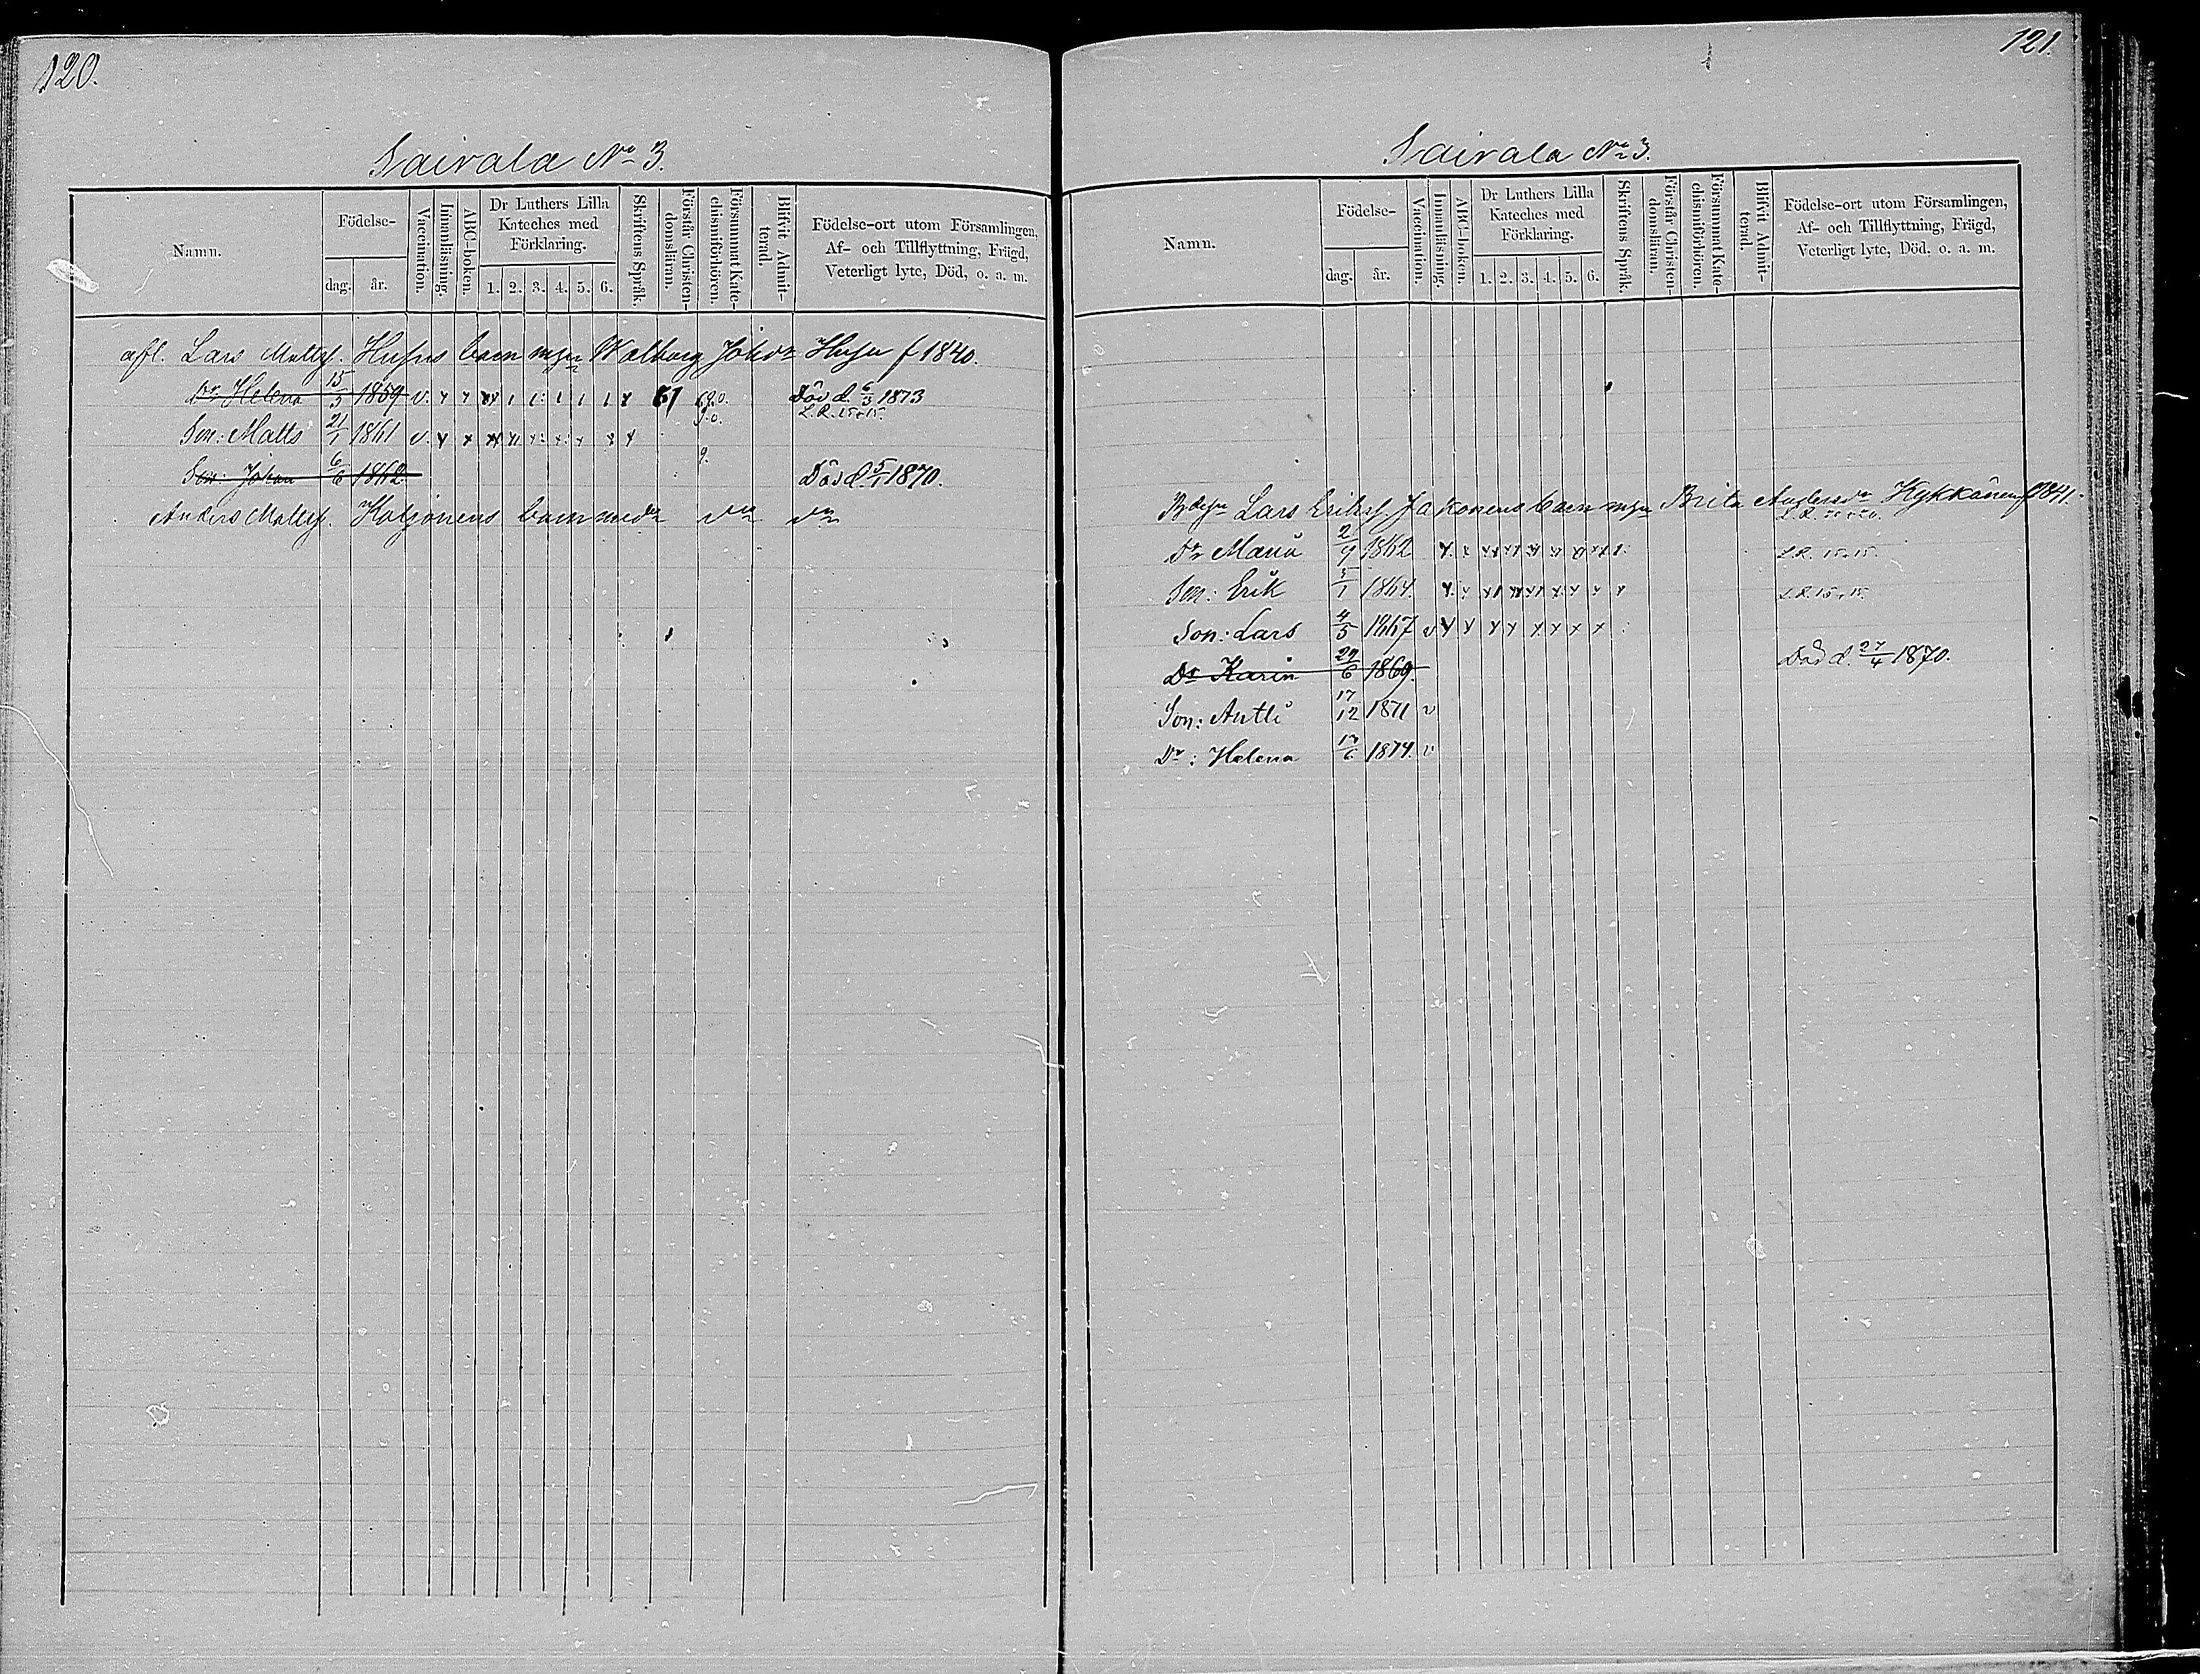 120.
Sairala No 3.
Namn.
Födelse-
dag.
år.
Vaccination.
Innanläsning.
ABC-boken.
Dr Luthers Lilla
Kateches med
Förklaring.
1. 2. 3. 4. 5. 6.
Skriftens Språk.
Förstår Christen-
domsläran.
Försummat Kate-
chismiförhören.
Blifvit Admit-
terad.
Födelse-ort utom Församlingen,
Af- och Tillflyttning, Frägd,
Veterligt lyte, Död, o. a. m.
afl. Lars Mattss. barn m Walborg Johdr f 1840.
Dr Helena 15/5 1859 v. Död d. 6/3 1873
L.R. 15+15
Son: Matts 21/1 1861 v.
Son: Johan 6/6 1862 Död d. 5/1 1870.
Anders Matss. barn med
121.
Sairala No 3.
Namn.
Födelse-
dag.
år.
Vaccination.
Innanläsning.
ABC-boken.
Dr Luthers Lilla
Kateches med
Förklaring.
1. 2. 3. 4. 5. 6.
Skriftens Språk.
Förstår Christen-
domsläran.
Försummat Kate-
chismiförhören.
Blifvit Admit-
terad.
Födelse-ort utom Församlingen,
Af- och Tillflyttning, Frägd,
Veterligt lyte, Död, o. a. m.
Lars Erikss. Jakonens barn m Brita Andersdr Kykkänen f 1841.
Dr Maria 2/9 1862 L.R. 15+15.
Son: Erik 5/1 1864. L.R. 15+15.
Son: Lars 4/5 1867 v
Dr Karin 29/6 1869. Död d. 27/4 1870.
Son: Antti 17/12 1871 v
Dr: Helena 13/6 1874. v